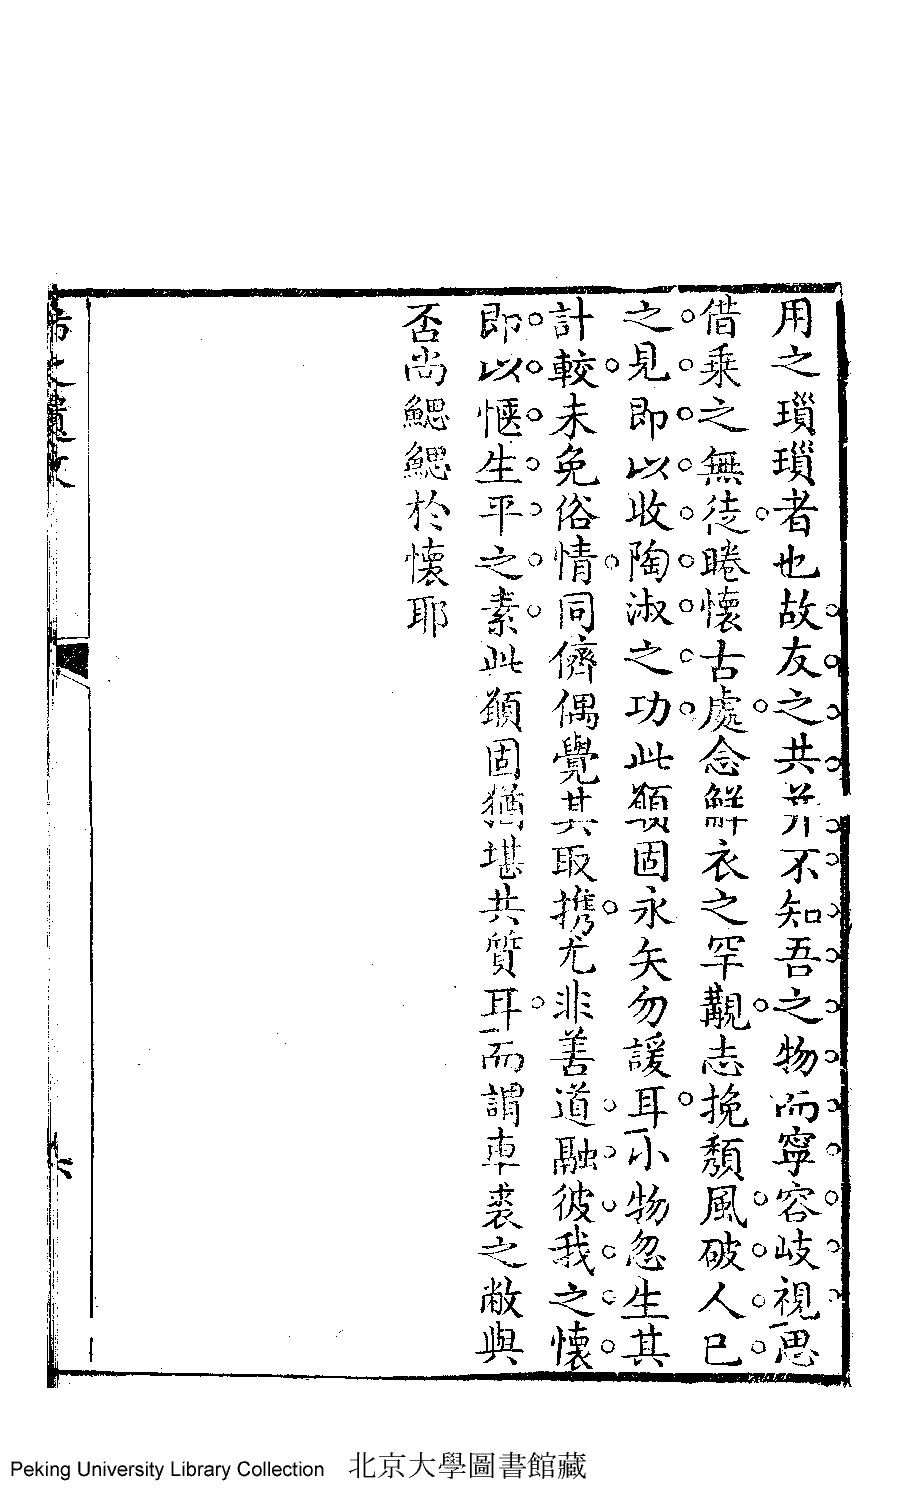 用之瑣瑣者也故友之共并不知吾之物而寧容歧視思
借乗之無徒睠懷古處念鮮衣之罕覯志挽頽風破人已
之見即以收陶淑之功此願固永矢勿諼耳小物忽生其
計較未免俗情同儕偶覺其取擕尤非善道融彼我之懷
即以愜生平之素此願固猶堪共質耳而謂車裘之敝與
否尚鰓鰓於懷耶
之遺文
六
Peking University Library Collection 北京大學圖書館藏